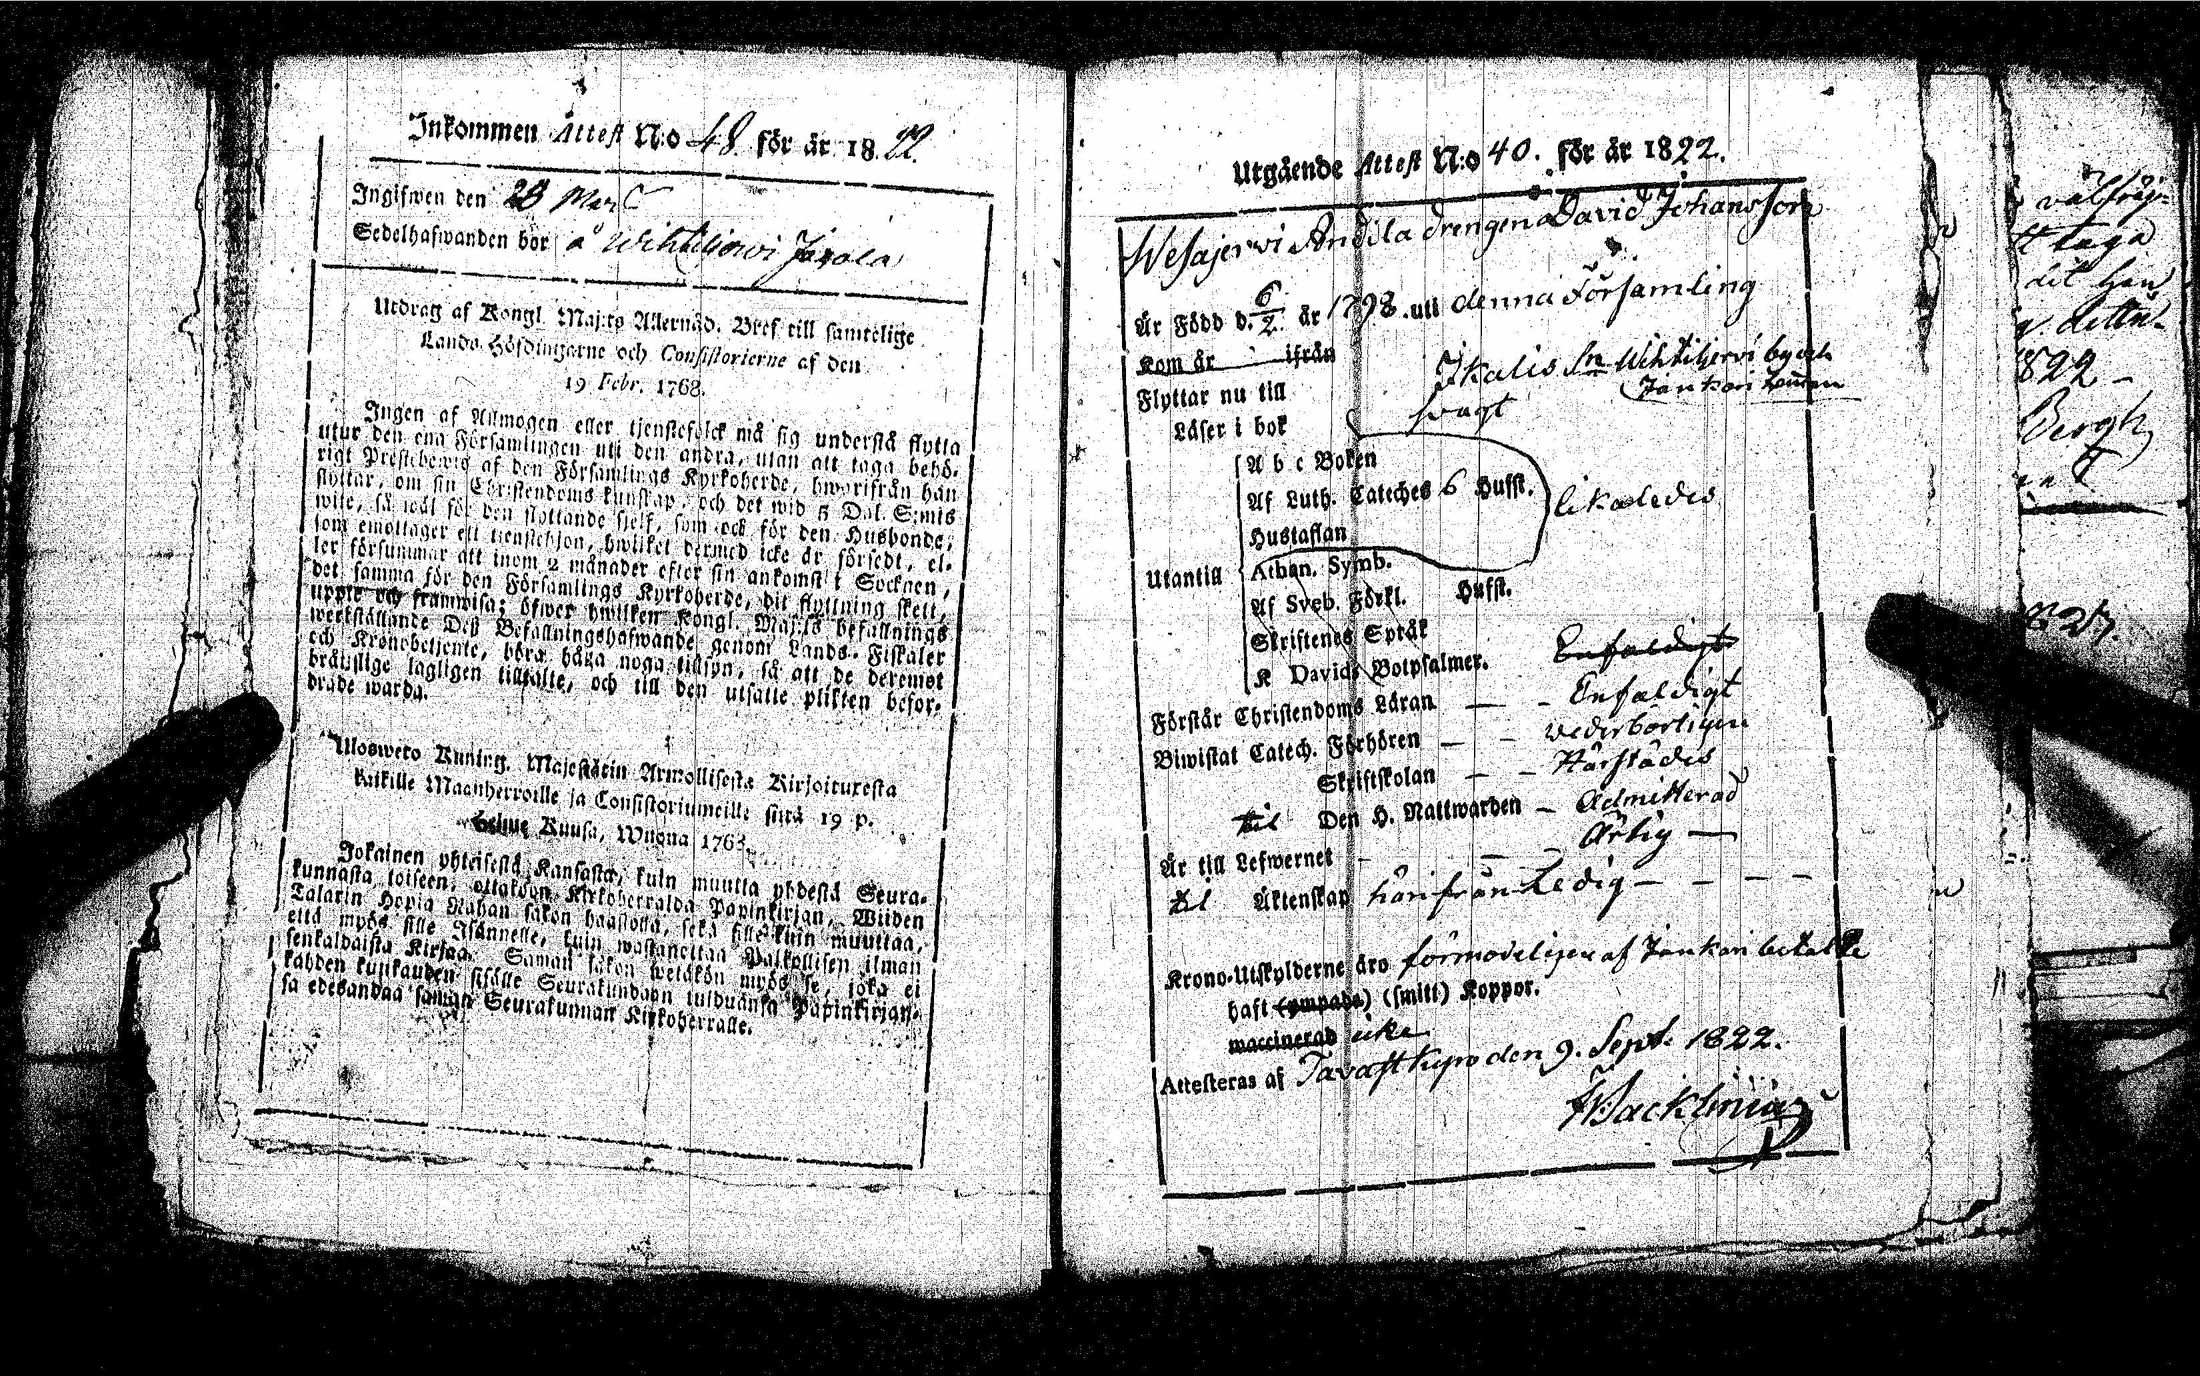 Inkommen Attest N:o 48 för år 1822.
Ingifwen den 28 Mart
Sedelhafwanden bor å Wihtiljerwi
Utdrag af Kongl. Maj:ts Allernåd. Bref till samtelige
Lands-Höfdingarne och Consistorierne af den
19 Febr. 1768.
Ingen af Allmogen eller tjenstefolck må sig understå flytta
utur den ena Församlingen uti den andra, utan att taga behö-
rigt Prestebewis af den Församlings Kyrkoherde, hwarifrån han
flyttar, om sin Christendoms kunskap, och det wid 5 Dal. S:mts
wite, så wäl för den flyttande sjelf, som ock för den Husbonde,
som emottager ett tjenstehjon, hwilket dermed icke är försedt, el-
ler försummar att inom 2 månader efter sin ankomst i Socknen,
det samma för den Församlings Kyrkoherde, dit flyttning skett,
uppte och framwisa; öfwer hwilken Kongl. Maj:ts befallnings
werkställande Deß Befallningshafwande genom Lands-Fiskaler
och Kronobetjente, böra hafwa noga tillsyn, så att de deremot
bråtslige lagligen tilltalte, och till den utsatte plikten befor-
drade warda.
Ulosweto Kuning. Majestätin Armollisesta Kirjoituxesta
kaikille Maanherroille ja Consistoriumeille siitä 19 p.
Helmi Kuusa, Wuona 1768.
Jokainen yhteisestä Kansasta, kuin muutta yhdestä Seura-
kunnasta toiseen, ottakoon Kirkoherralda Papinkirjan, Wiiden
Talarin Hopia Rahan sakon haastolla, sekä sille kuin muuttaa,
että myös sille Isännelle, kuin wastanottaa Palkollisen ilman
senkaldaista Kirjaa. Saman sakon wetäkön myös se, joka ei
kahden kuukauden sisälle Seurakundaan tulduansa Papinkirjan-
sa edesandaa saman Seurakunnan Kirkoherralle.
Utgående Attest N:o 40. för år 1822.
Wesajerwi Andila drengen David Johansson
Är Född d. 6/2 år 1798. uti denna Församling
Kom år ifrån
Flyttar nu till Ikalis Sn Wihtiljerwi byyh
Jankari hemman
Läser i bok swagt
A b c Boken
Af Luth. Cateches 6 Hufst.
Hustaflan
likaledes
Utantill
Athan. Symb.
Af Sveb. Förkl. Hufst.
Skriftenes Språk
K Davids Botpsalmer.
Enfaldigt
Förstår Christendoms Läran — - Enfaldigt
Biwistat Catech. Förhören — - wederbörligen
Skriftskolan — - Härstädes
til Den H. Nattwarden — Admitterad
Är till Lefwernet - — - Ärlig —
til Äktenskap härifrån Ledig — - — -
Krono-Utskylderne äro förmodeligen af Jankari betalte
haft (ympade) (smitt) Koppor.
waccinerad icke
Attesteras af Tavastkyro den 9. Sept. 1822.
välfrej-
taga
dit han
822 -
Bergh
N 27.